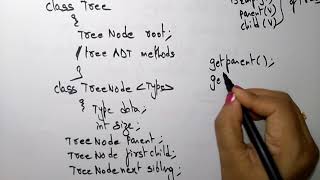 class Tree
{
TreeNode root;
/tree ADT methods
}
class TreeNode <Type>
{ Type data;
int size;
TreeNode parent;
TreeNode firstchild;
TreeNode next sibling;
parent(v)
child(v)
getparent();
ge